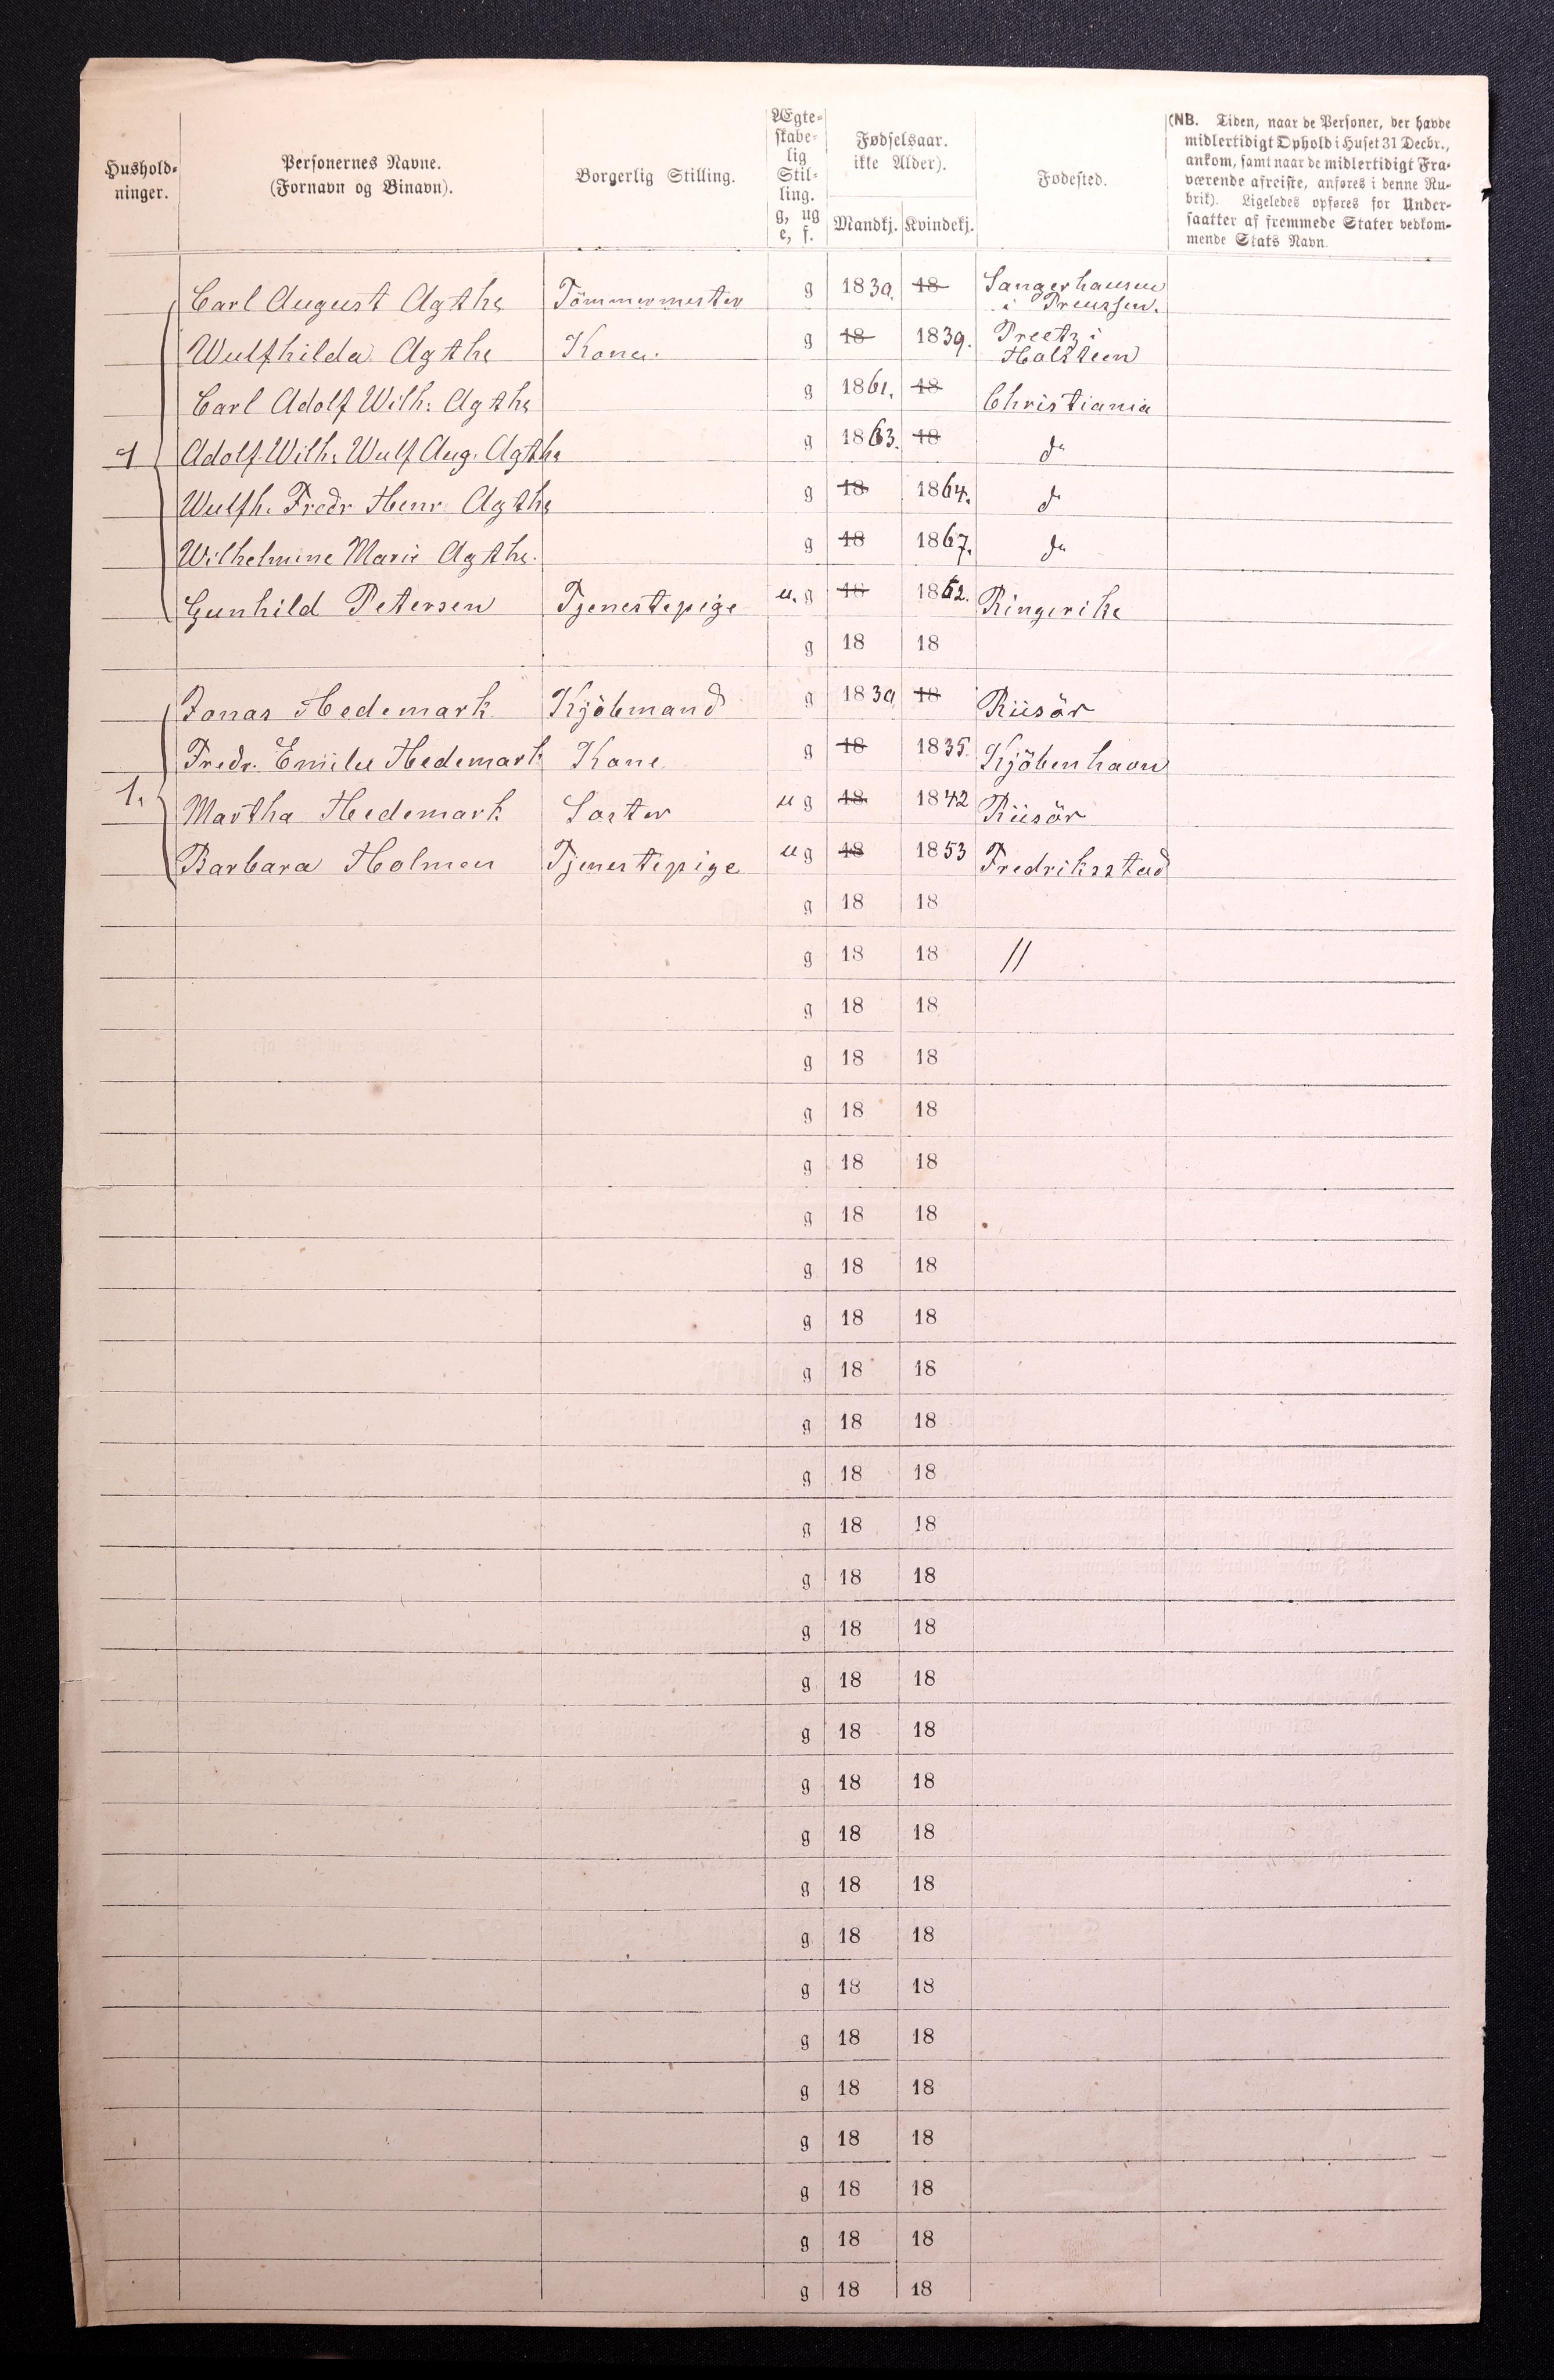 Hushold-
ninger.
Personernes Navne.
(Fornavn og Binavn).
Borgerlig Stilling.
Ægte-
skabe-
lig
Stil-
ling.
g, ug
e, f.
Fødselsaar.
ikke Alder).
Mandkj. Kvindekj.
Fødested.
(NB. Tiden, naar de Personer, der havde
midlertidigt Ophold i Huset 31 Decbr.,
ankom, samt naar de midlertidigt Fra-
værende afreiste, anføres i denne Ru-
brik). Ligeledes opføres for Under-
saatter af fremmede Stater vedkom-
mende Stats Navn.
Carl August Agthe Tömmermester g 1839. 18 Sangerhausen
i Preussen.
Wulfhilda Agthe Kone. g 18 1839. Preetz i
Holsteen
Carl Adolf Wilh: Agthe g 1861. 18 Christiania
1 Adolf Wilh: Wulf Aug. Agthe g 1863. 18 do
Wulfh. Fredr Henr Agthe g 18 1864. do
Wilhelmine Marie Agthe. g 18 1867. do
Gunhild Petersen Tjenestepige u. g 18 1852. Ringerike
g 18 18
Jonas Hedemark Kjöbmand g 1839 18 Riisör
Fredr. Emilie Hedemark Kone g 18 1835. Kjöbenhavn
1. Martha Hedemark Söster u g 18 1842 Riisör
Barbara Holmen Tjenestepige u g 18 1853 Fredriksstad
g 18 18
g 18 18 //
g 18 18
g 18 18
g 18 18
g 18 18
g 18 18
g 18 18
g 18 18
g 18 18
g 18 18
g 18 18
g 18 18
g 18 18
g 18 18
g 18 18
g 18 18
g 18 18
g 18 18
g 18 18
g 18 18
g 18 18
g 18 18
g 18 18
g 18 18
g 18 18
g 18 18
g 18 18